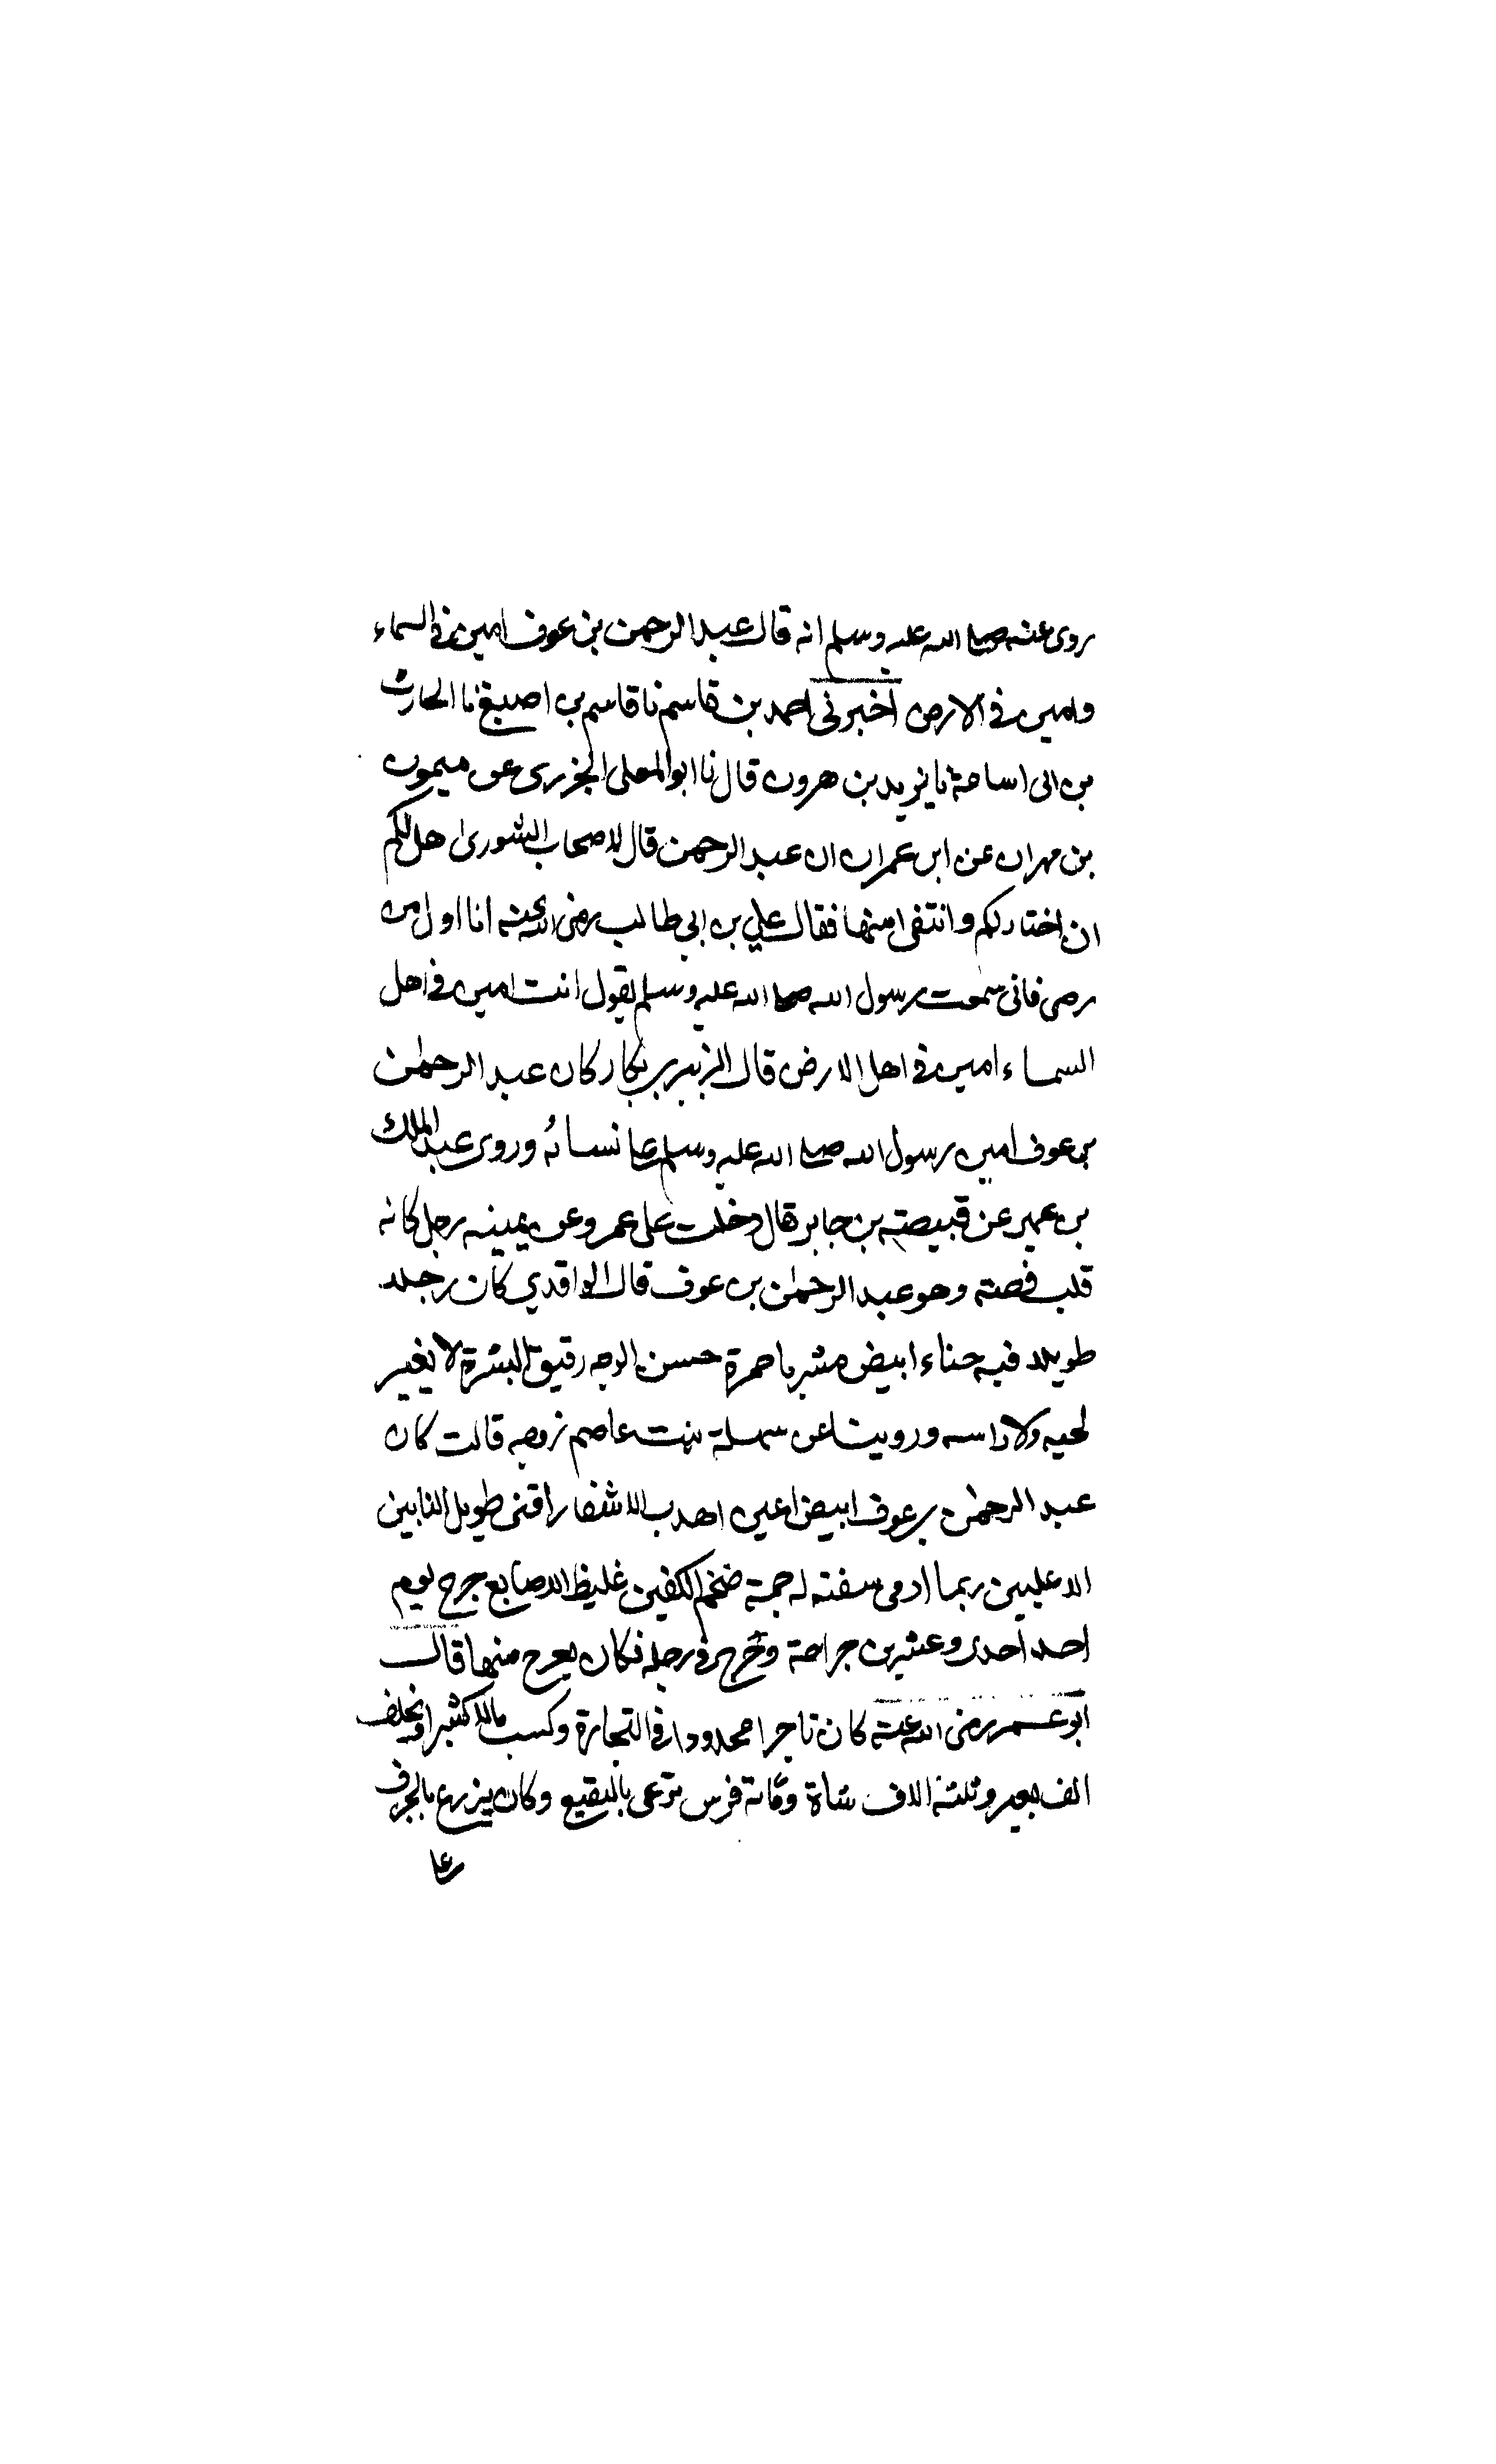 روى عنه صلى الله عليه وسلم انه قال عبد الرحمن بن عوف امين في السماء
وامين في الارض اخبرني احمد بن قاسم نا قاسم بن اصبغ نا الحارث
بن ابى اسامة نا يزيد بن هرون قال نا ابو المعلى الجزرى عن ميمون
بن مهران عن ابن عمران ان عبد الرحمن قال لاصحاب الشورى هل لكم
ان اختار لكم وانتفى منها فقال علي بن ابي طالب رضى الله عنه انا اول من
رضى فانى سمعت رسول الله صلى الله عليه وسلم يقول انت امين في اهل
السماء امين في اهل الارض قال الزبير بن بكار كان عبد الرحمٰن
بن عوف امين رسول الله صلى الله عليه وسلم على نسائه وروى عبد الملك
بن عمير عن قبيصته بن جابر قال دخلت على عمر وعن يمينه رجل كانه
قلب فصته وهو عبد الرحمٰن بن عوف قال الواقدي كان رجلا
طويلا فيه جناء ابيض مشربا حمرة حسن الوجه رقيق البشرة لا يغير
لحيه ولا راسه وروينا عن سهلة بنت عاصم زوجه قالت كان
عبد الرحمٰن بن عوف ابيض اعين اهدب الاشفار اقنى طويل النابين
الاعليين ربما ادمى سفته له جمة ضخم الكفين غليظ الاصابع جرح يوم
احد احدى وعشرين جراحة وجرح في رجله فكان يعرج منها قال
ابو عمر رضى الله عنه كان تاجرا محدودا في التجارة وكسب مالا كثيرا وخلف
الف بعير وثلثة الاف شاة ومائة فرس ترعى بالبقيع وكان يزرع بالجرف
على